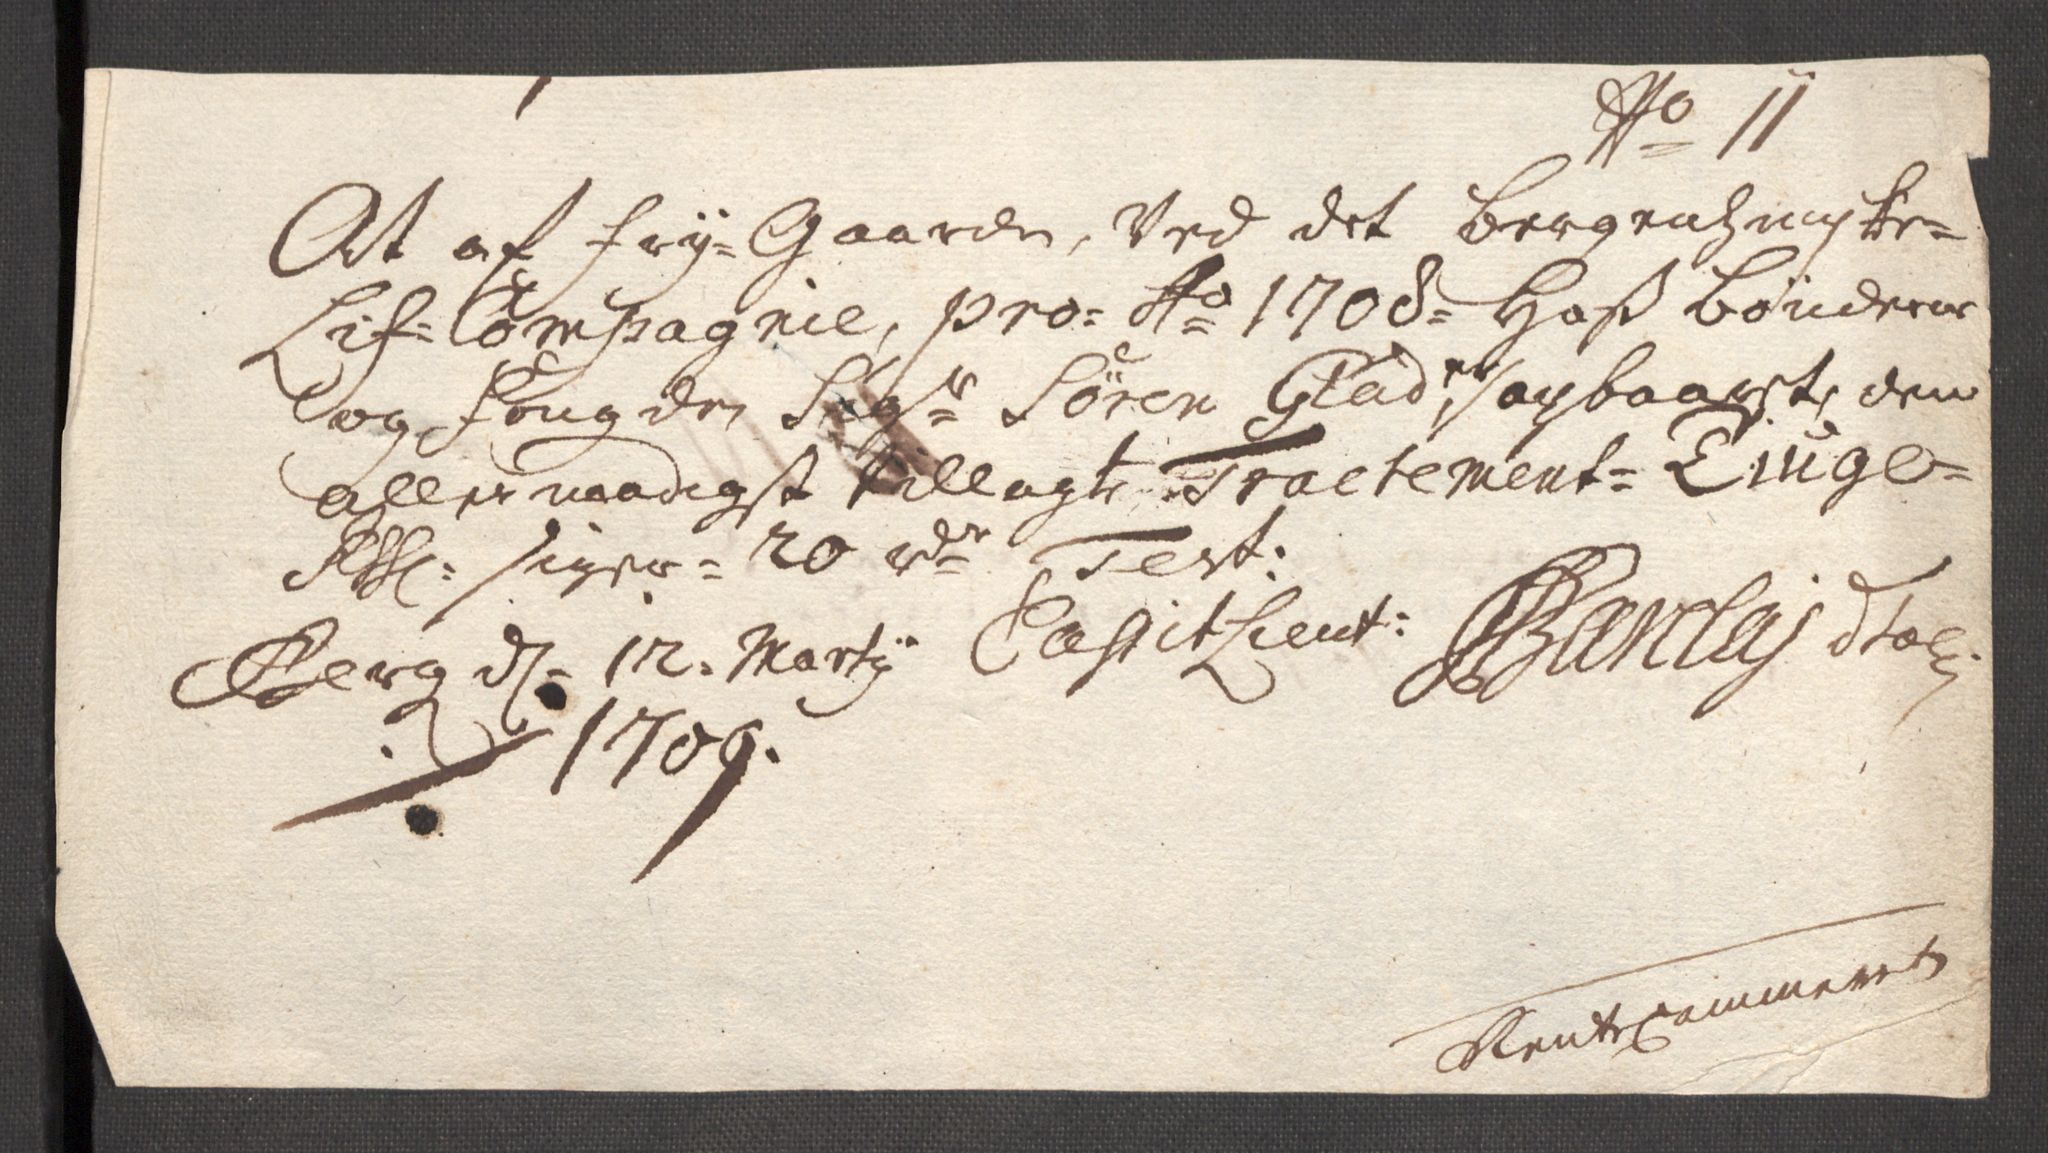 No 11
At af frÿ-Gaarde, Ved det Bergenhuuske-
Lif-Compagnie, pro- Ao 1708- Hoß Bönderne
og fougden Sigr Sören Glad, er oppebaaret, den
allernaadigst tillagte Tractement- Penge
siger- 20 rdr Test:
Berg d. 12. Martÿ Capit Lieut: Barclaÿ
1709.
Rentecammeret